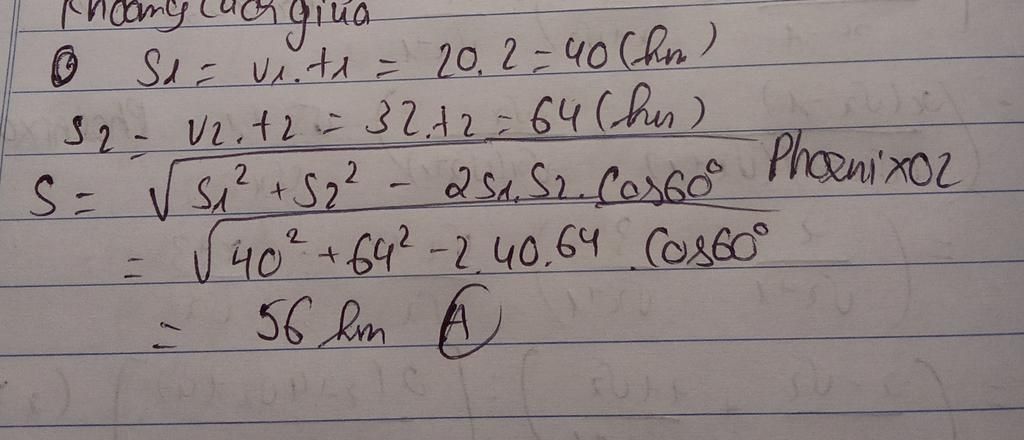 Khoảng cách giữa
S1 = V1.t1 = 20.2 = 40 (km)
S2 = V2.t2 = 32.t2 = 64 (km)
S = √S1² + S2² - 2S1.S2.Cos60° Phoenix02
= √40² + 64² - 2.40.64.Cos60°
= 56 km A